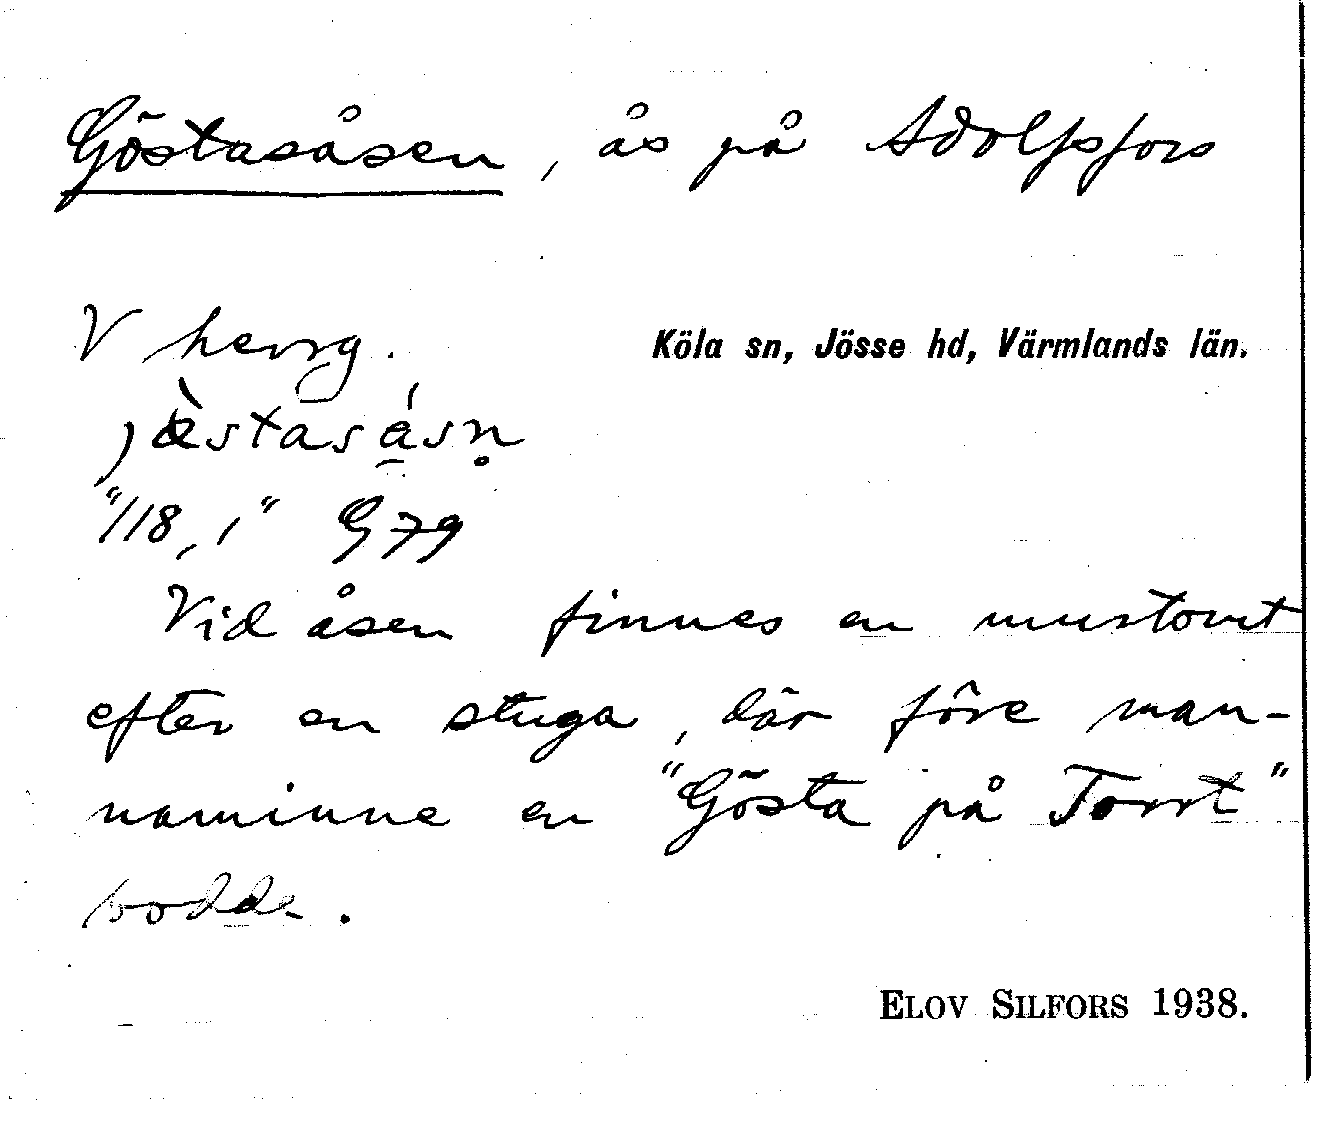 Göstasåsen, ås på Adolfsfors
V herrg.
Köla sn, Jösse hd, Värmlands län.
jæ̀stasásn̥
"/18, 1" G 79
Vid åsen finnes en murtomt
efter en stuga, där före man-
naminne en "Gösta på Torrt"
bodde.
ELOV SILFORS 1938.